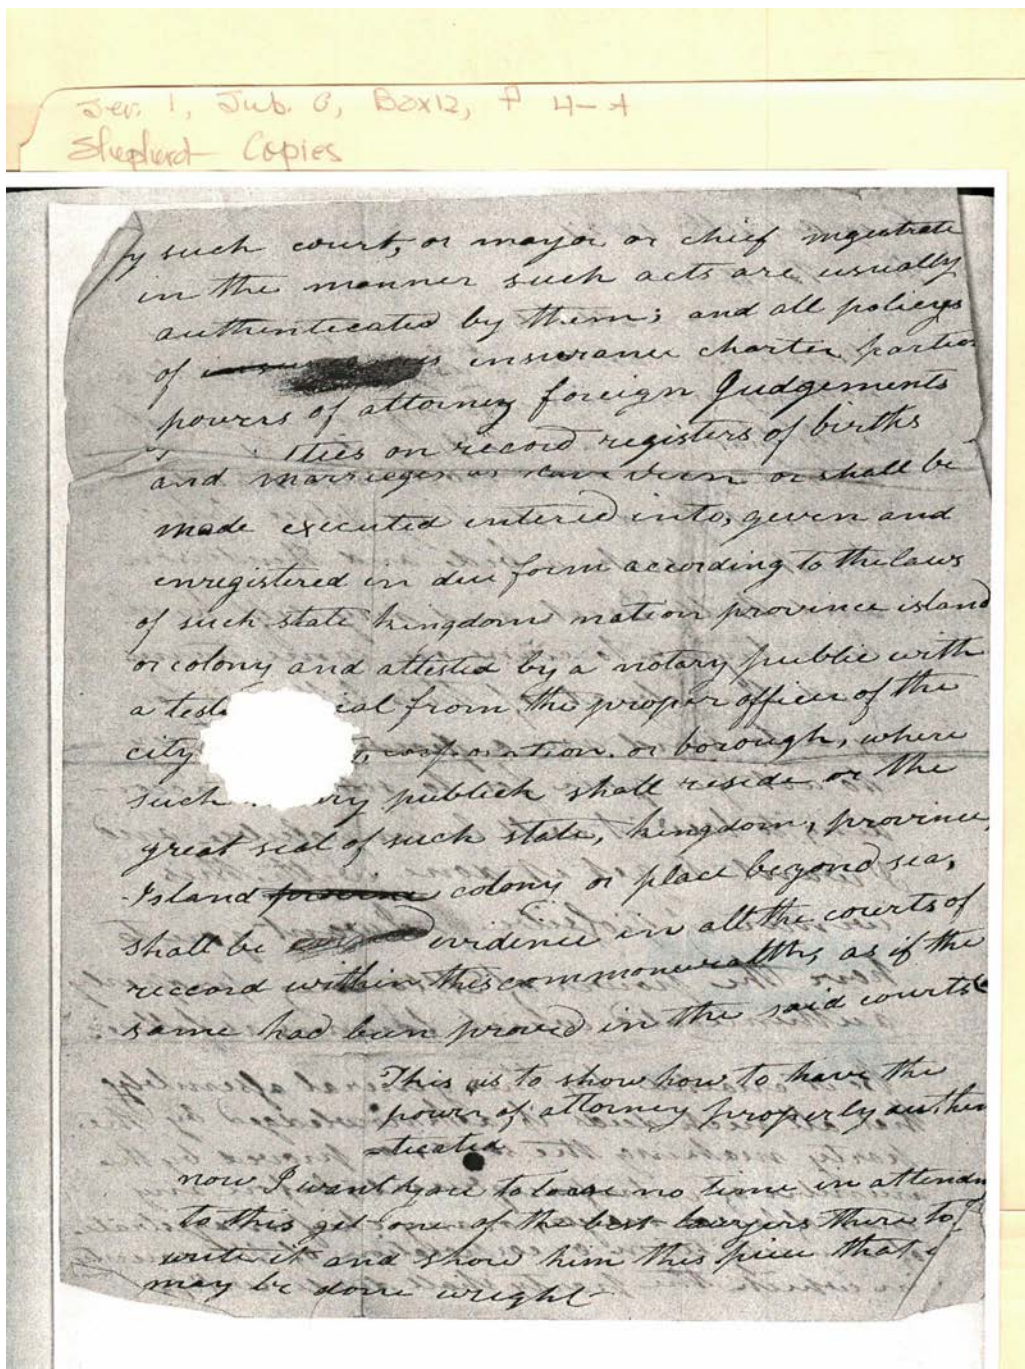 Ser. 1, Sub. C, Box 12, F 4-A
Shepherd Copies
by such court, or mayor or chief magestrate
in the manner such acts are usually
authenticated by them; and all policyes
of insurance charter parties
powers of attorney foreign Judgements
ities on record registers of births
and marrieges as have been or shall be
made executed entered into, given and
enregistered in due form according to the laws
of such state kingdom nation province island
or colony and attested by a notary public with
a test ial from the proper officer of the
city corporation or borough, where
such ry publick shall reside or the
great seal of such state, kingdom, province,
Island province colony or place beyond sea,
shall be evidence in all the courts of
reccord within this commonwealth, as if the
same had been proved in the said courts
This is to show how to have the
power of attorney properly authen
ticated
now I want you to loose no time in attendn
to this get one of the best lawyers there to
write it and show him this piece that
may be done wright